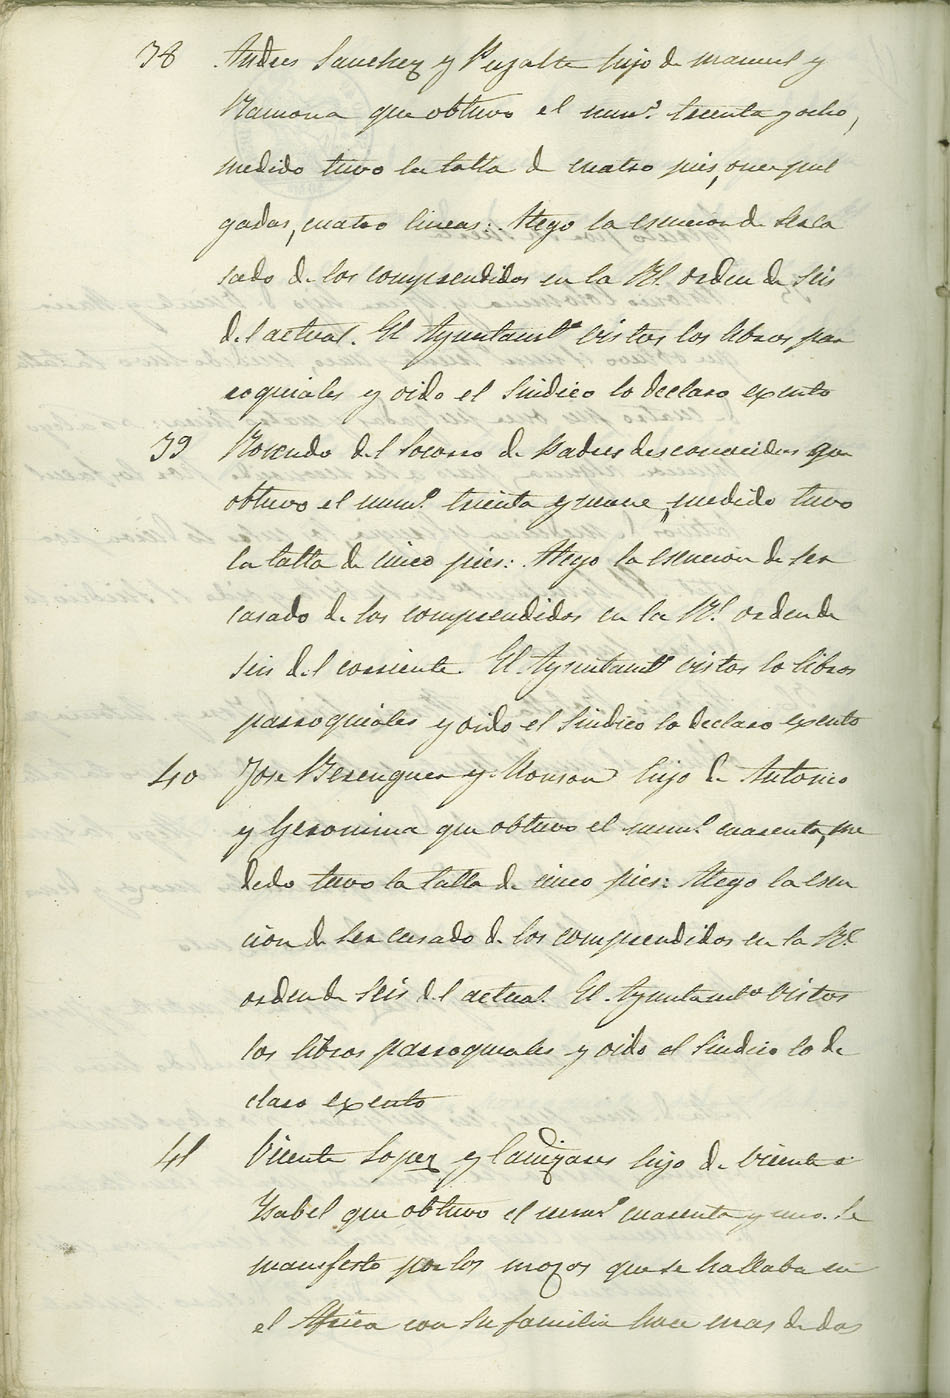 38 Andres Sanchez y Peralta hijo de Manuel y
Ramona que obtuvo el num.º treinta y ocho,
medido tuvo la talla de cuatro pies, once pul
gadas, cuatro lineas: Alego la esencion de ser ca
sado de los comprendidos en la Rl. orden de seis
del actual. El Ayuntamto. vistos los libros par
roquiales y oido el Sindico lo declaro exento
39 Rosendo del Socorro de padres desconocidos que
obtuvo el num.º treinta y nueve, medido tuvo
la talla de cinco pies: Alego la esencion de ser
casado de los comprendidos en la Rl. orden de
seis del corriente. El Ayuntamto. vistos lo libros
parroquiales y oido el Sindico lo declaro exento
40 Jose Berenguer y Monson hijo de Antonio
y Geronima que obtuvo el num.º cuarenta, me
dedo tuvo la talla de cinco pies: Alego la esen
cion de ser casado de los comprendidos en la Rl.
orden de seis del actual. El Ayuntamto. vistos
los libros parroquiales y oido el Sindico lo de
claro exento
41 Vicente Lopez y Cañizares hijo de Vicente e
Ysabel que obtuvo el num.º cuarenta y uno. Se
manifesto por los mozos que se hallaba en
el Africa con su familia hace mas de dos